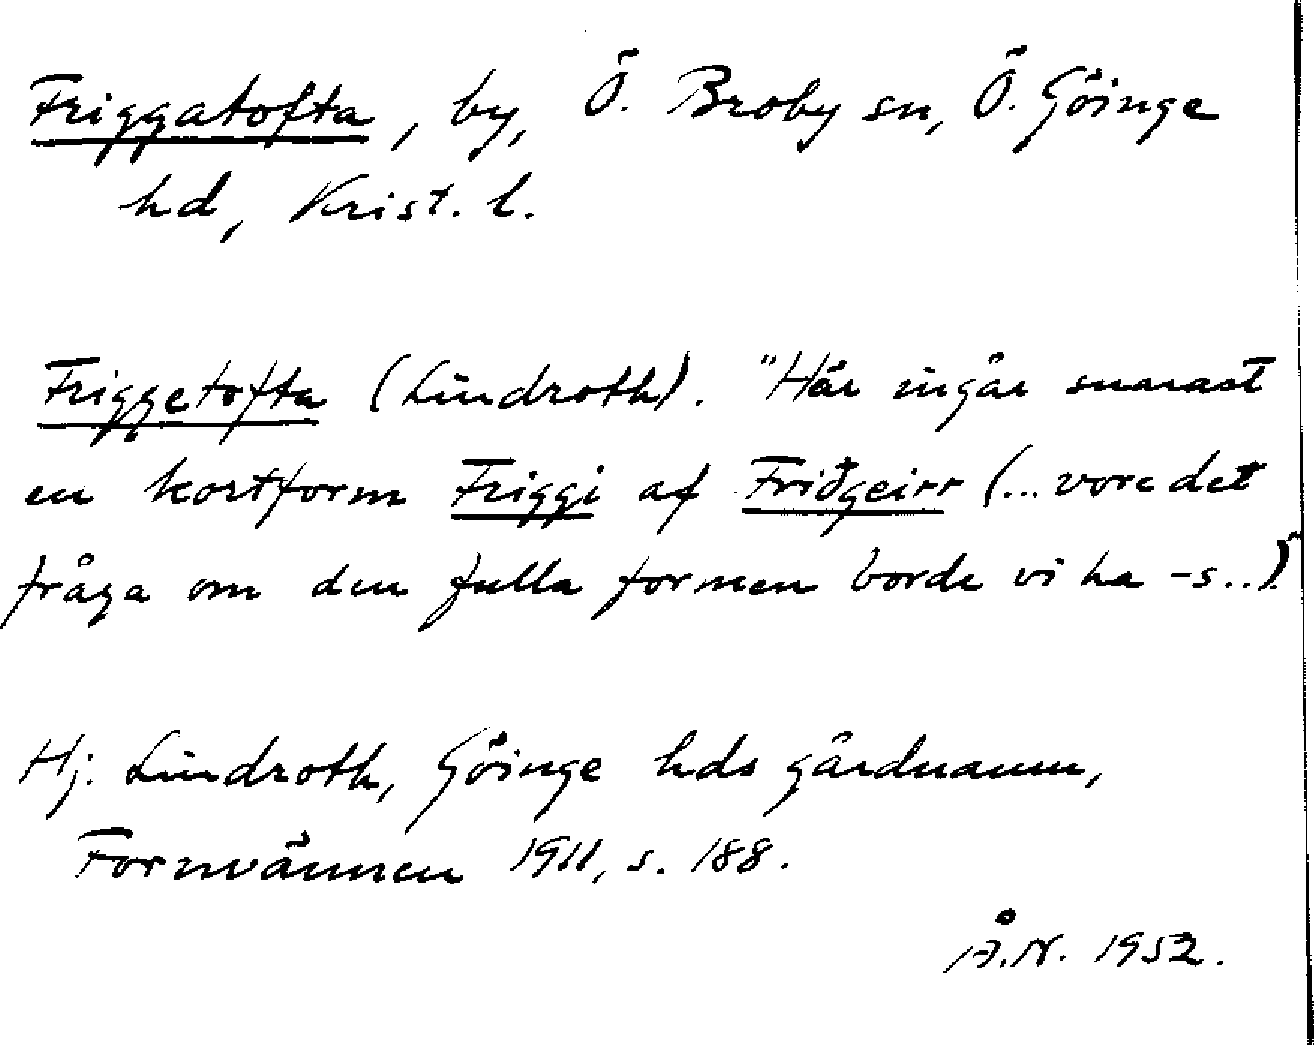 Friggatofta, by, Ö. Broby sn, Ö. Göinge
hd, Krist. l.
Friggetofta (Lindroth). "Här ingår snarast
en kortform Friggi af Friðgeirr (... vore det
fråga om den fulla formen borde vi ha -s..)"
Hj. Lindroth, Göinge hds gårdnamn,
Fornvännen 1911, s. 188.
Å.N. 1952.